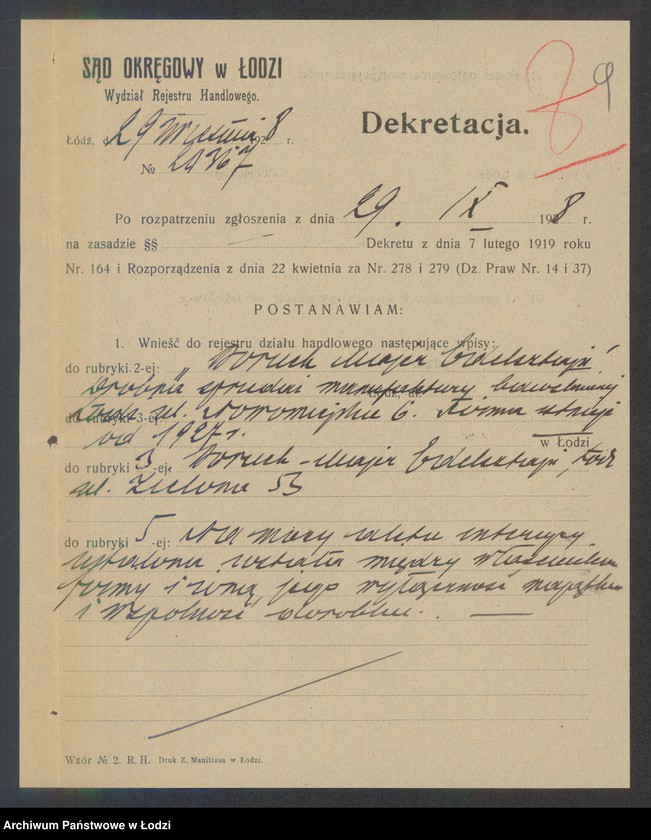 SĄD OKRĘGOWY w ŁODZI
Wydział Rejestru Handlowego.
Łódź, d 29 Wrześni 1928 r.
Dekretacja.
9
№
Po rozpatrzeniu zgłoszenia z dnia 29. IX 1928 r.
na zasadzie §§ — Dekretu z dnia 7 lutego 1919 roku
Nr. 164 i Rozporządzenia z dnia 22 kwietnia za Nr. 278 i 279 (Dz. Praw Nr. 14 i 37)
POSTANAWIAM:
1. Wnieść do rejestru działu handlowego następujące wpisy:
do rubryki 2-ej: „Boruch Majer Edelsztajn"
Drobna sprzedaż manufaktury bawełnianej
do rubryki 3-ej: ul. Nowomiejska 6. Firma istnieje
od 1927 r.
w Łodzi
do rubryki 3-ej. Boruch-Majer Edelsztajn, Łódź
ul. Zielona 53
do rubryki 5-ej: Na mocy aktu intercyzy
ustalona została między właścicielem
firmy i żoną jego wyłączność majątku
i wspólność dorobku. —
Wzór № 2. R. H. Druk Z. Manitiusa w Łodzi.
Archiwum Państwowe w Łodzi